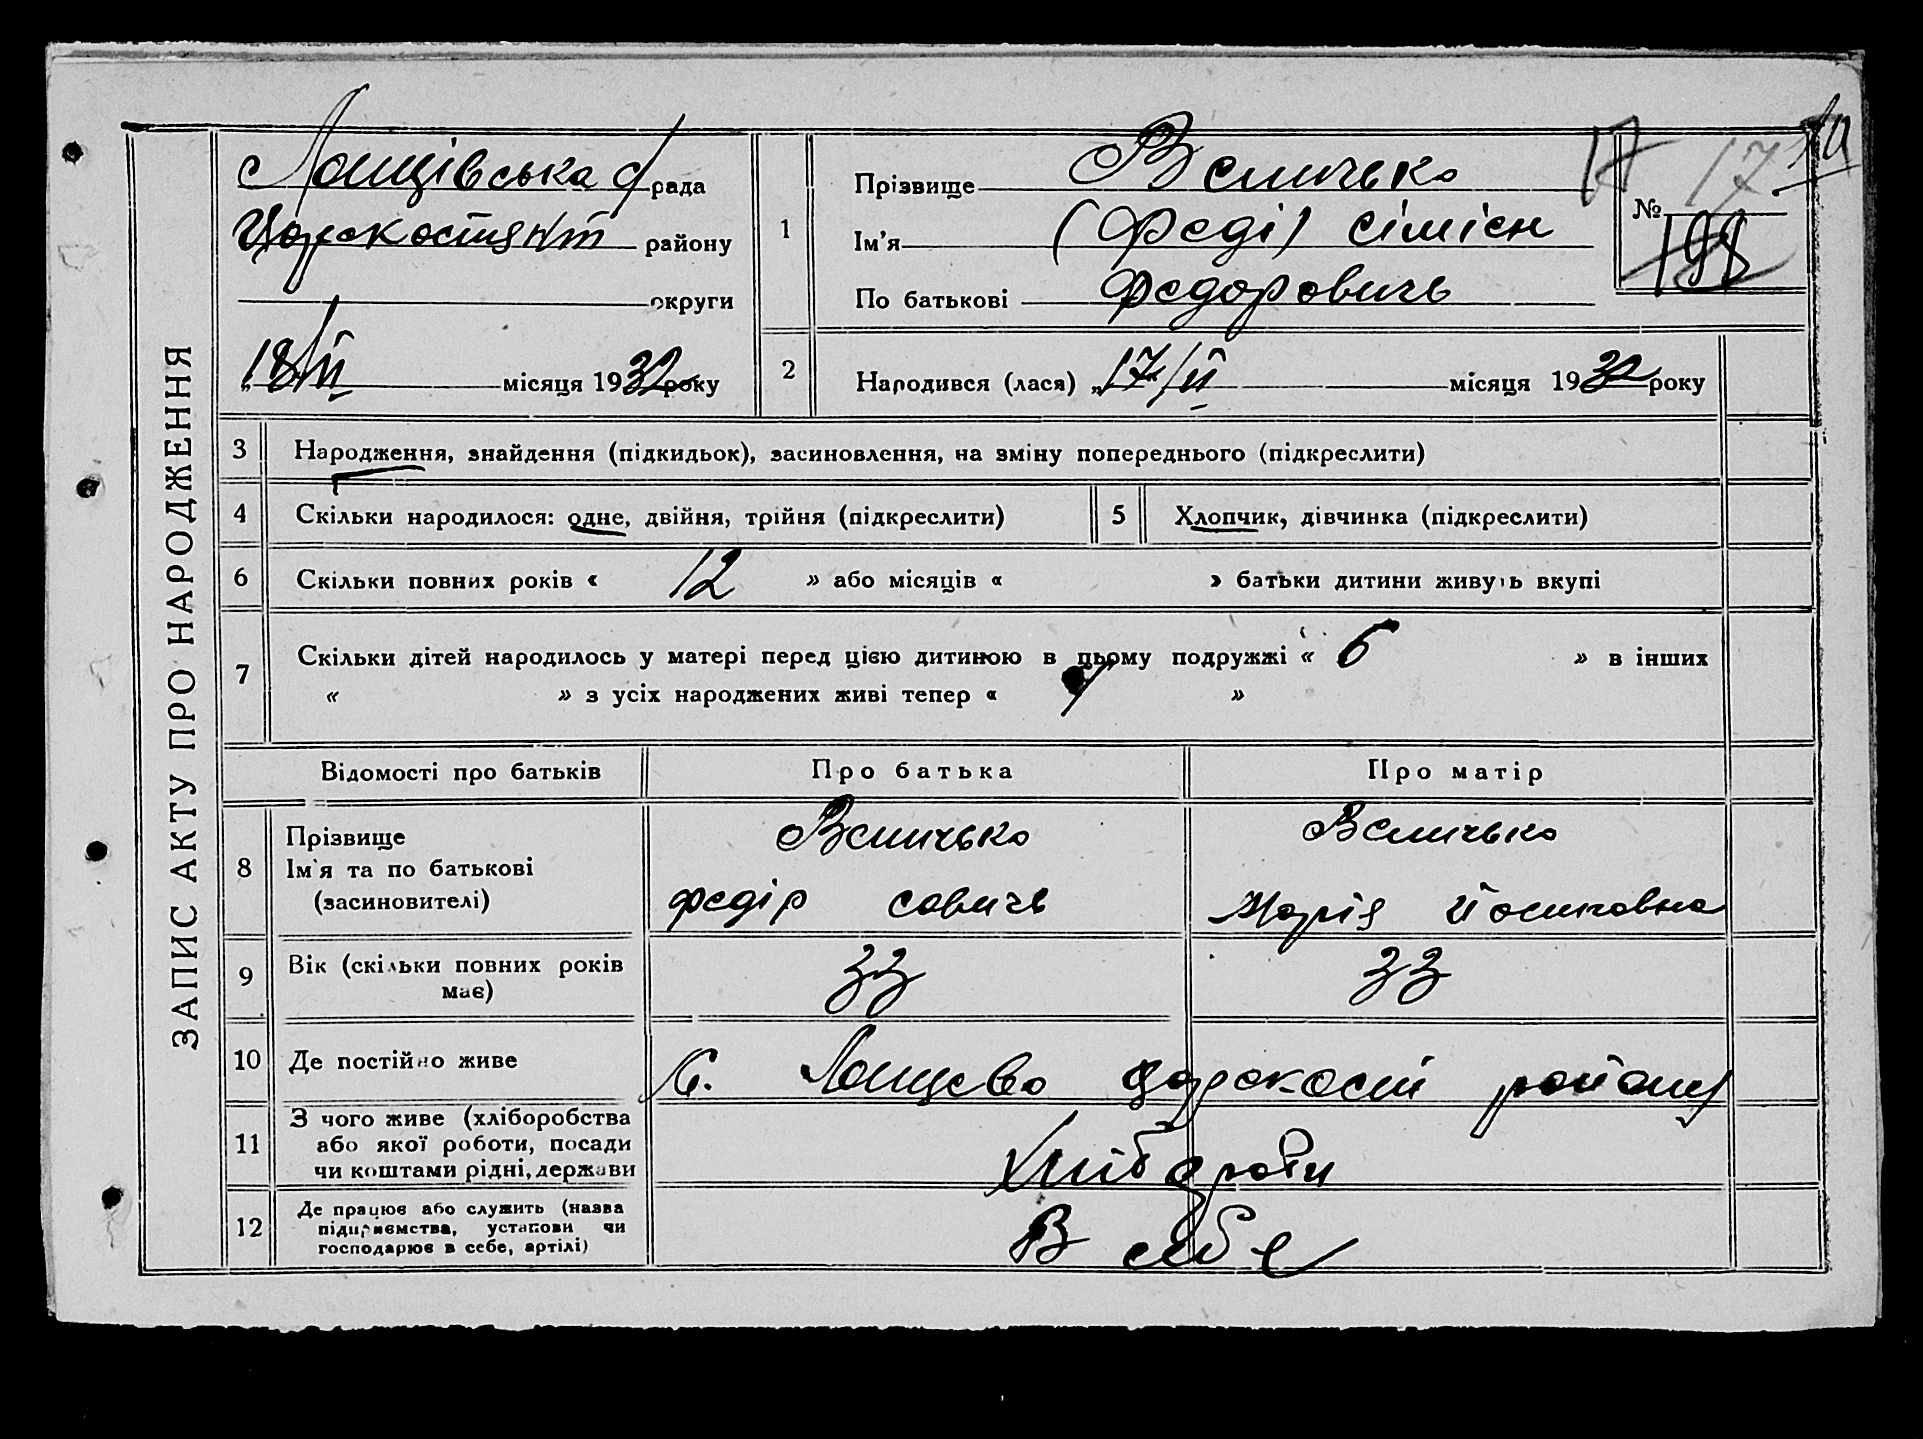 ЗАПИС АКТУ ПРО НАРОДЖЕННЯ
Лощівська с/рада
району
округи
„18/ІІ місяця 1932 року
1
Прізвище Величько
Ім'я (Феді) Сімієн
По батькові Федоровичь
№
17
198
2
Народився (лася) „17"/ІІ місяця 1932 року
3 Народження, знайдення (підкидьок), засиновлення, на зміну попереднього (підкреслити)
4 Скільки народилося: одне, двійня, трійня (підкреслити)
5 Хлопчик, дівчинка (підкреслити)
6 Скільки повних років « 12 » або місяців « » батьки дитини живуть вкупі
7 Скільки дітей народилось у матері перед цією дитиною в цьому подружжі « 6 » в інших
« » з усіх народжених живі тепер « »
Відомості про батьків Про батька Про матір
8 Прізвище
Ім'я та по батькові
(засиновителі)
Величько
Федір Савичь
Величько
Марія Йосиповна
9 Вік (скільки повних років
має)
33
33
10 Де постійно живе
С. Лощево району
11 З чого живе (хліборобства
або якої роботи, посади
чи коштами рідні, держави
12 Де працює або служить (назва
підприємства, установи чи
господарює в себе, артілі)
В себе